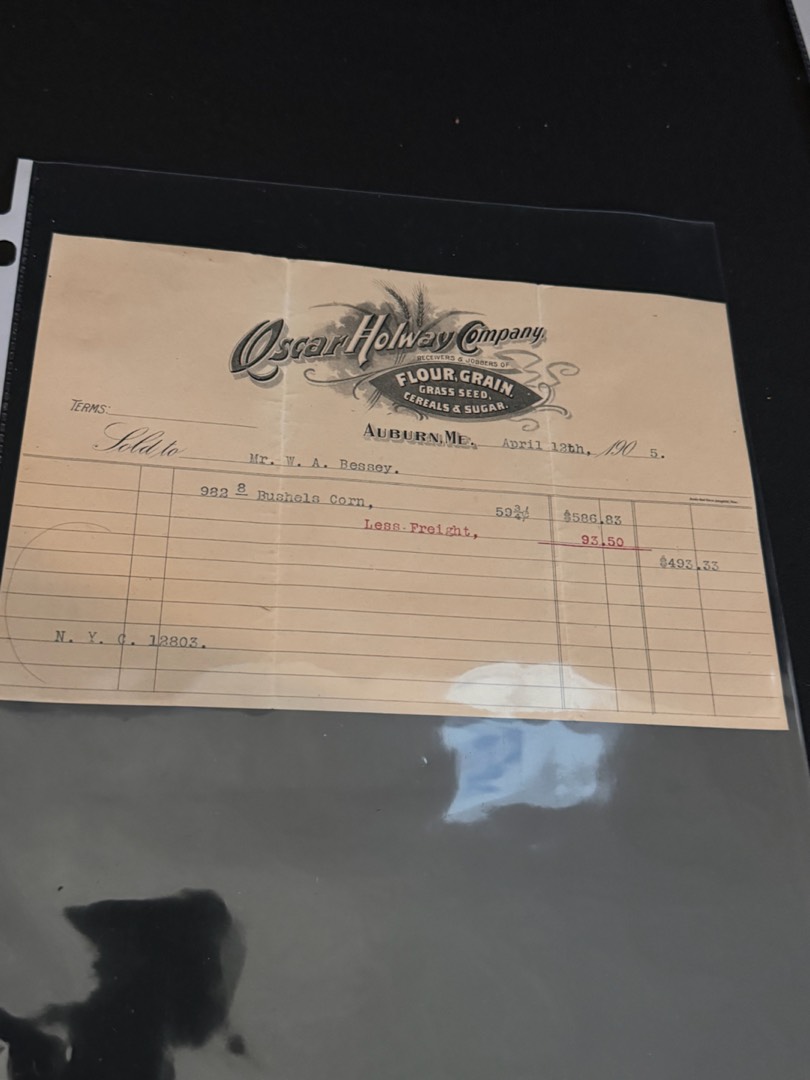 Oscar Holway Company
RECEIVERS & JOBBERS OF
FLOUR, GRAIN,
GRASS SEED,
CEREALS & SUGAR.
AUBURN, ME. April 12th, 1905.
TERMS:
Sold to Mr. W. A. Bessey.
982 8 Bushels Corn, 59¾ $586.83
Less Freight, 93.50
$493.33
N. Y. C. 12803.